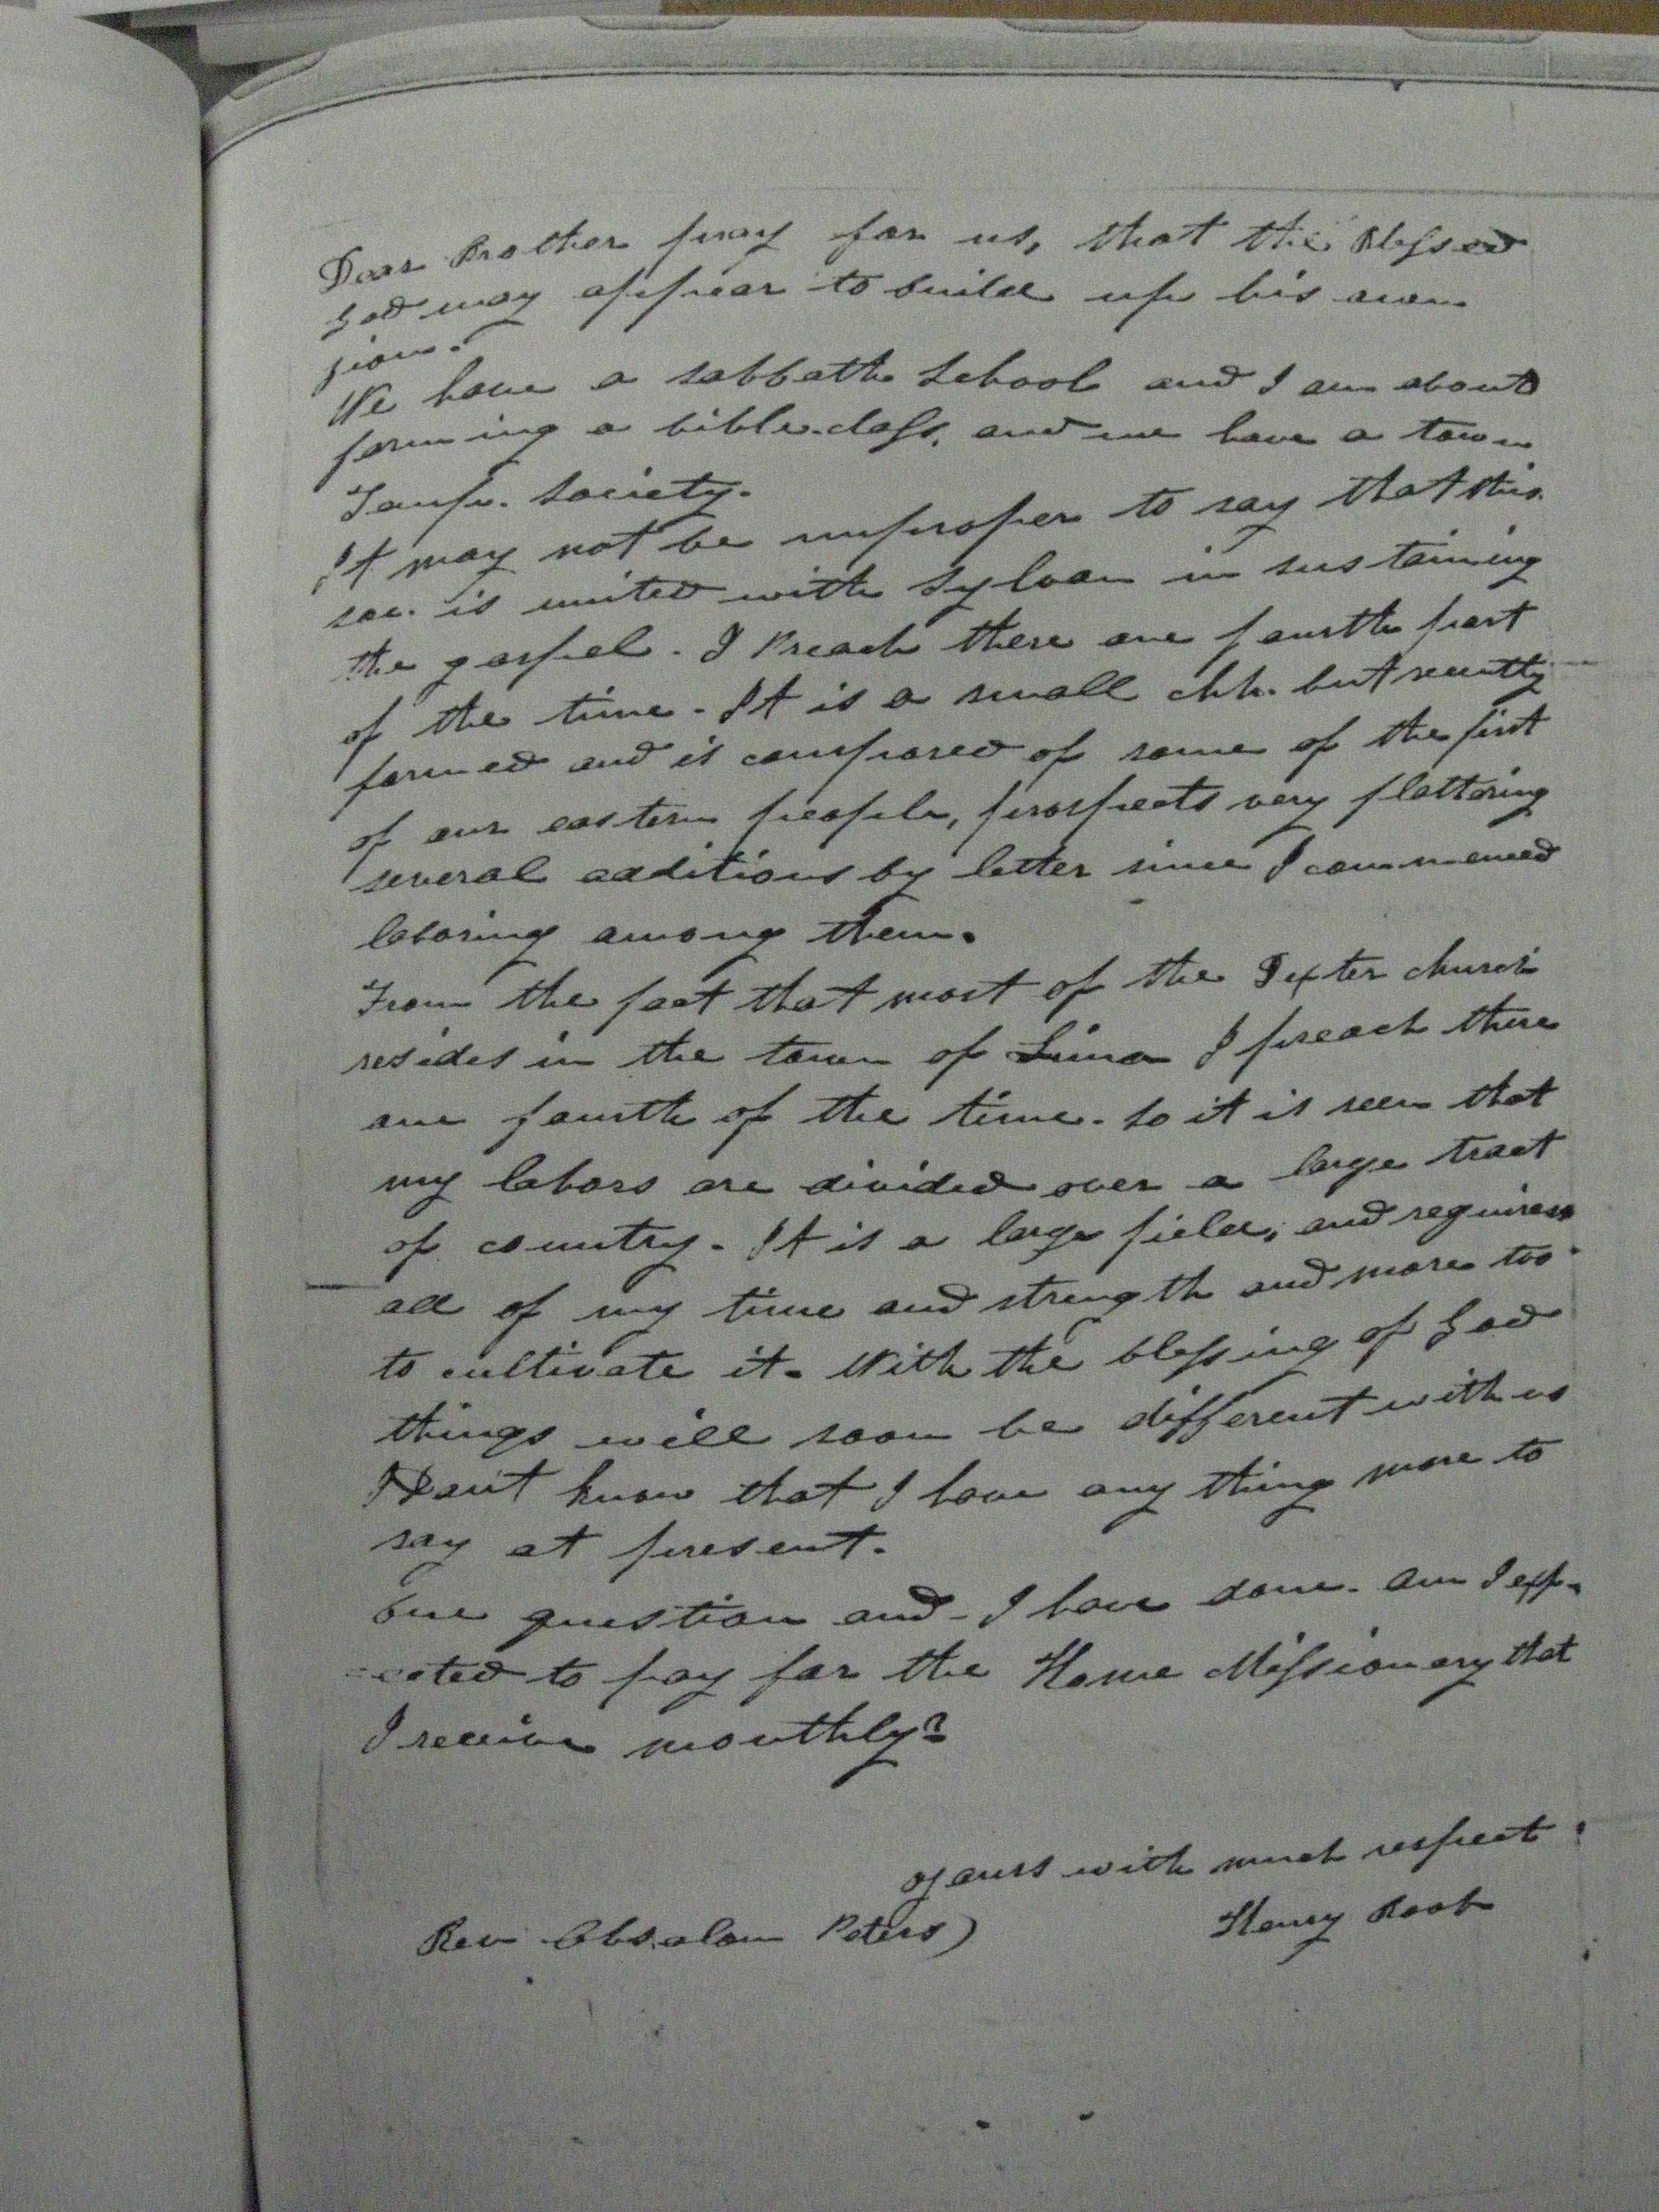 Dear Brother pray for us, that the Blessed
God may appear to build up his own
zion.
We have a sabbath School and I am about
forming a bible-class, and we have a town
Temp. Society.
It may not be improper to say that this
soc. is united with Sylvan in sustaining
the gospel. I Preach there one fourth part
of the time. It is a small chh. but recently
formed and is composed of some of the first
of our eastern people, prospects very flattering
several additions by letter since I commenced
laboring among them.
From the fact that most of the Dexter church
resides in the town of Lima I preach there
one fourth of the time. So it is seen that
my labors are divided over a large tract
of country. It is a large field, and requires
all of my time and strength and more too
to cultivate it. With the blessing of God
things will soon be different with us
I Don't know that I have any thing more to
say at present.
One question and I have done. Am I exp-
ected to pay for the Home Missionary that
I receive monthly?
yours with much respect
Rev Absalom Peters) Henry Root